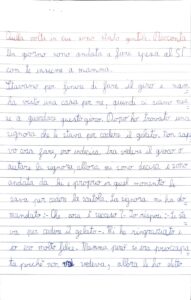 Quella volta in cui sono stata gentile. Racconta
Un giorno sono andata a fare spesa al SI
con te insieme a mamma.
Stavamo per finire di fare il giro e mam
ma visto una cosa per me, quindi ci siamo mes
e a guardare questo giro. Dopo ho trovato una
signora che le stava per cadere il gelato, non sape
vo cosa fare, può vedersi, tra vedere il gioco o
aiutare la signora, allora mi sono decisa e sono
andata da lei e proprio in quel momento le
stava per cadere la scatola. La signora mi ha do
mandato:- Che cosa è successo?- Io risposi:- Le sta
va per cadere il gelato-. Mi ha ringraziato e
io ero molto felice. Mamma però si era preoccupa
ta perché non mi vedeva, allora le ho detto